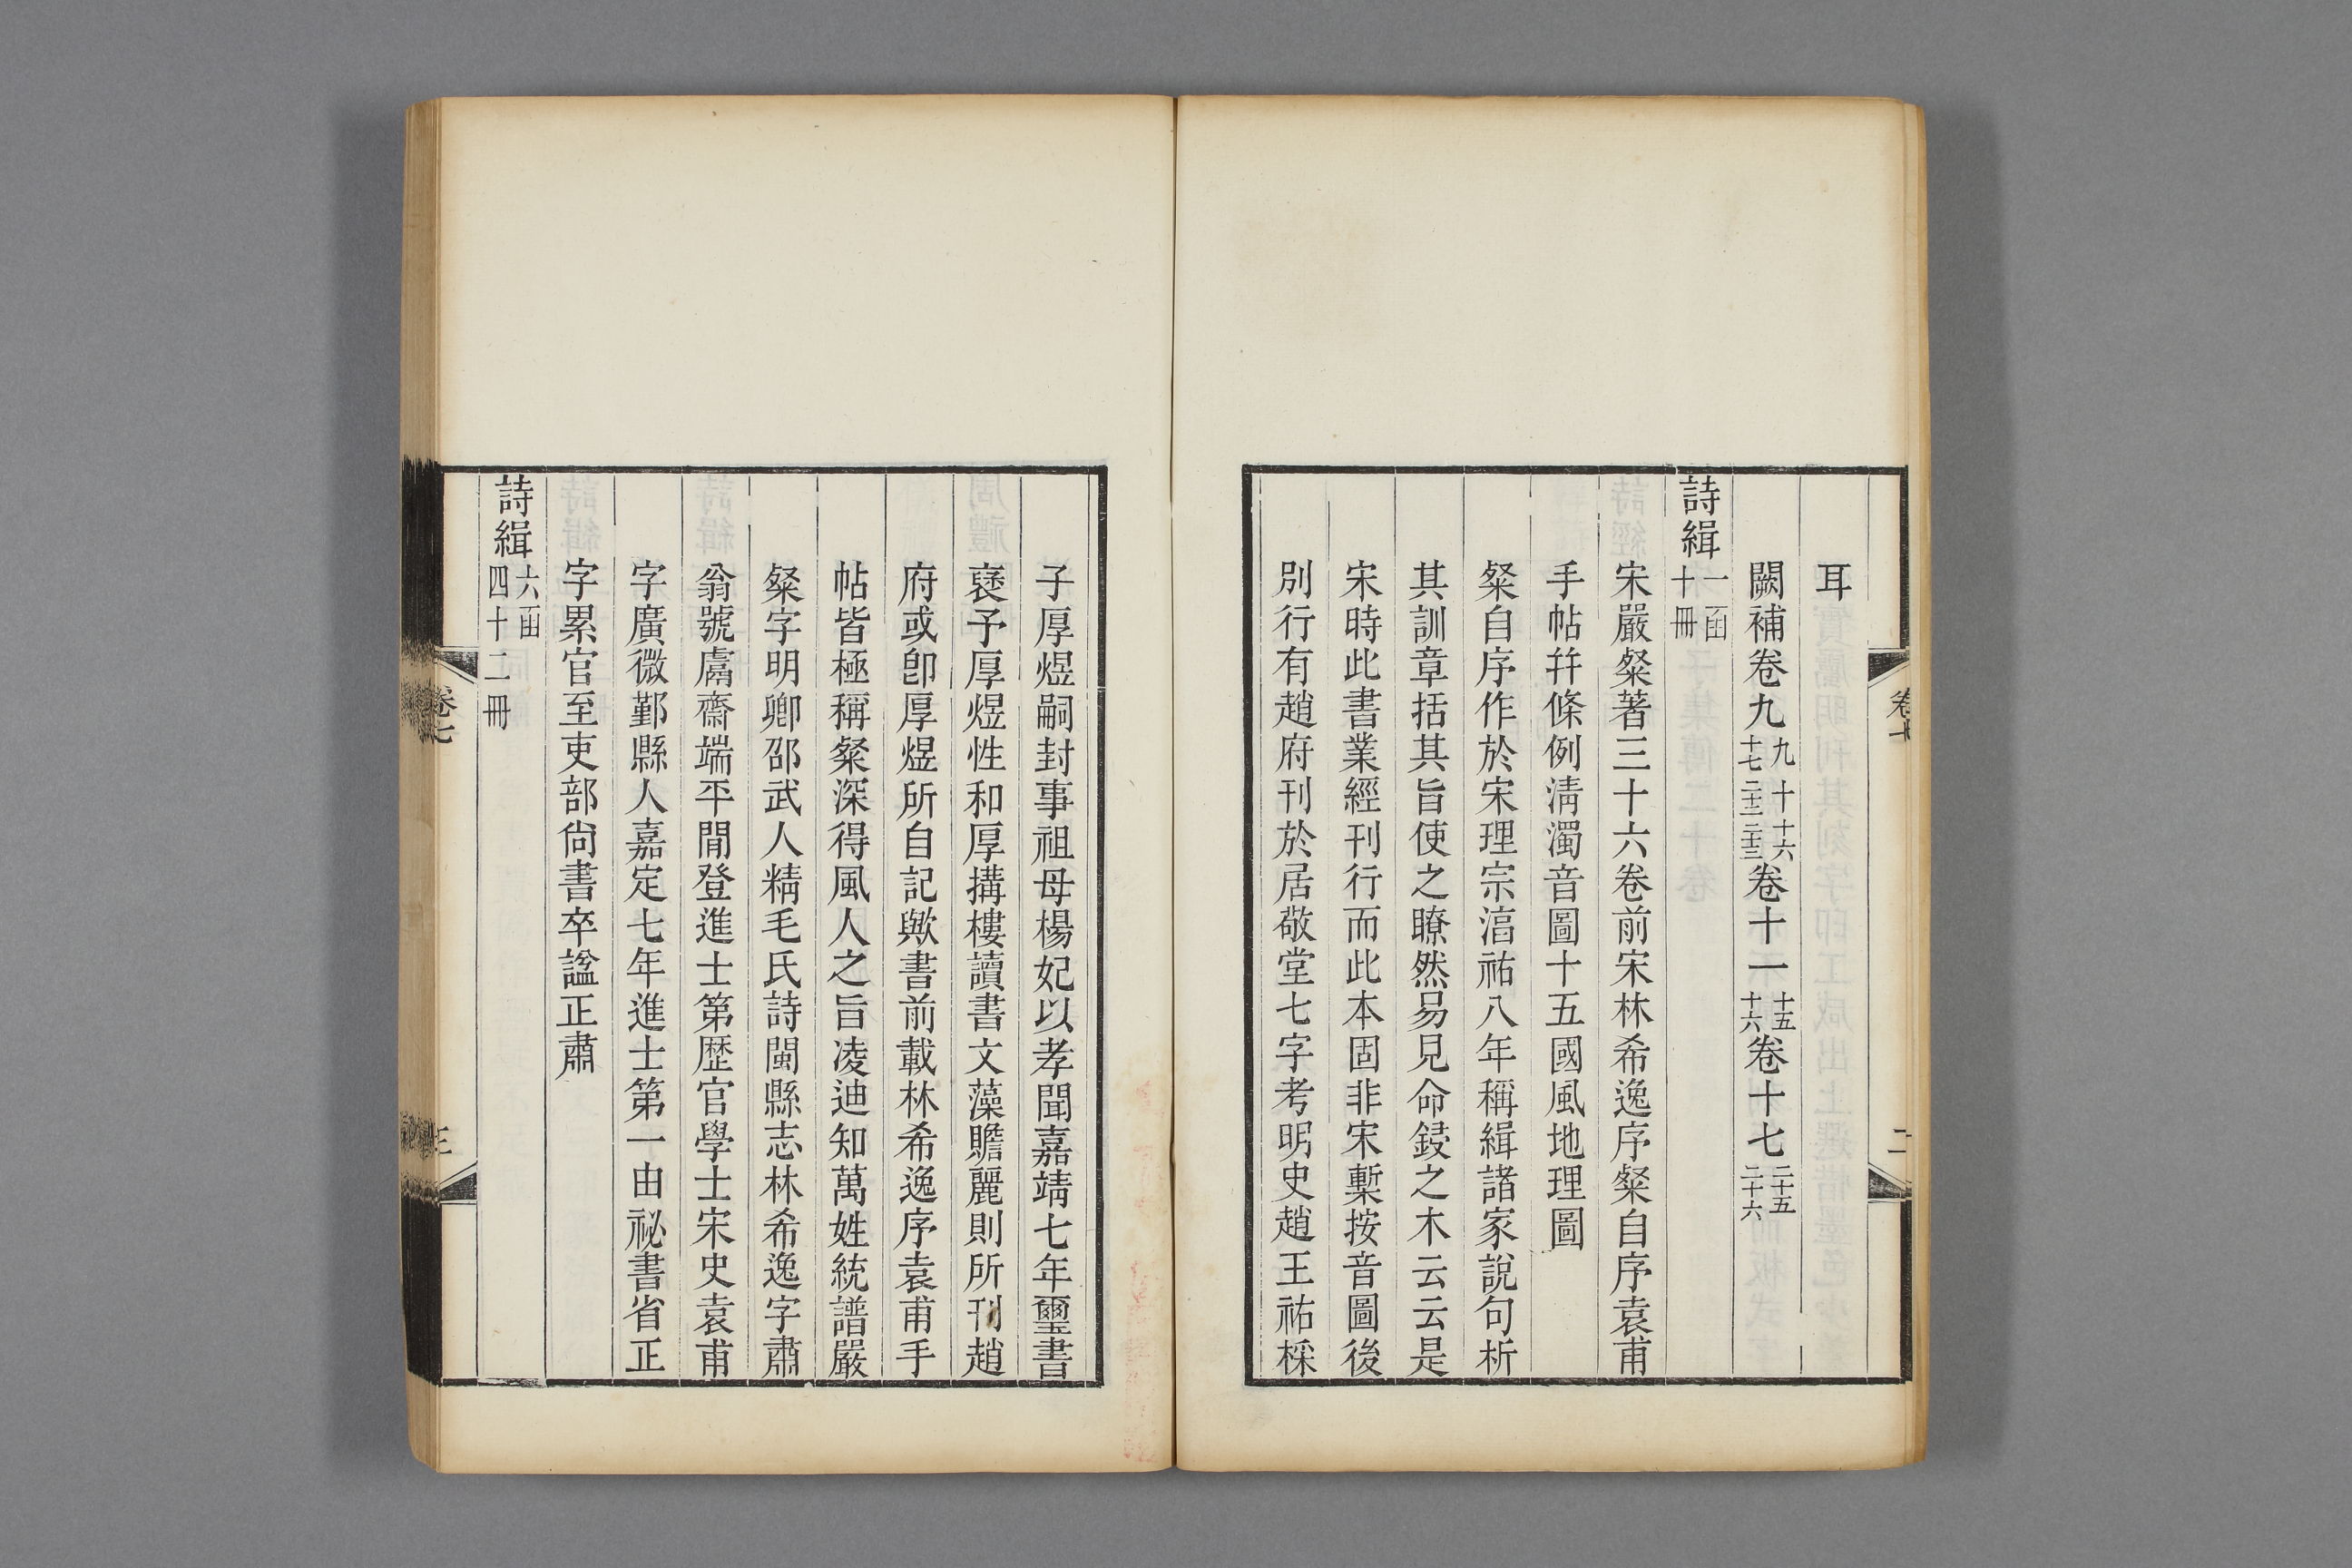 耳
闕補卷九九 十 十六 十七 二十二 二十三卷十一十五 十六卷十七二十五 二十六
詩緝一函 十冊
宋嚴粲著三十六卷前宋林希逸序粲自序袁甫
手帖幷條例淸濁音圖十五國風地理圖
粲自序作於宋理宗湻祐八年稱緝諸家說句析
其訓章括其旨使之瞭然易見命鋟之木云云是
宋時此書業經刊行而此本固非宋槧按音圖後
別行有趙府刊於居敬堂七字考明史趙王祐棌
卷七
二
子厚煜嗣封事祖母楊妃以孝聞嘉靖七年璽書
褒予厚煜性和厚搆樓讀書文藻贍麗則所刊趙
府或卽厚煜所自記歟書前載林希逸序袁甫手
帖皆極稱粲深得風人之旨凌迪知萬姓統譜嚴
粲字明卿邵武人精毛氏詩閩縣志林希逸字肅
翁號鬳齋端平閒登進士第歷官學士宋史袁甫
字廣微鄞縣人嘉定七年進士第一由祕書省正
字累官至吏部尙書卒諡正肅
詩緝六函 四十二冊
卷七
三